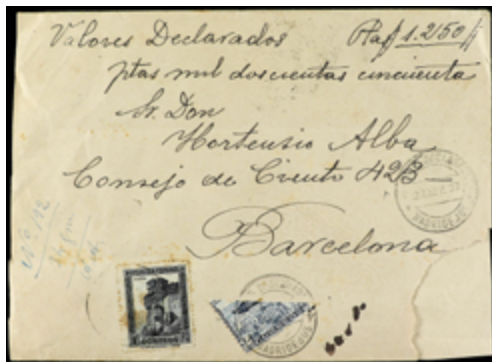 Valores Declarados Ptas 1.250
ptas mil doscientas cincuenta
Sr. Don
Hortensio Alba
Consejo de Ciento 423
Barcelona
MADRIDEJOS